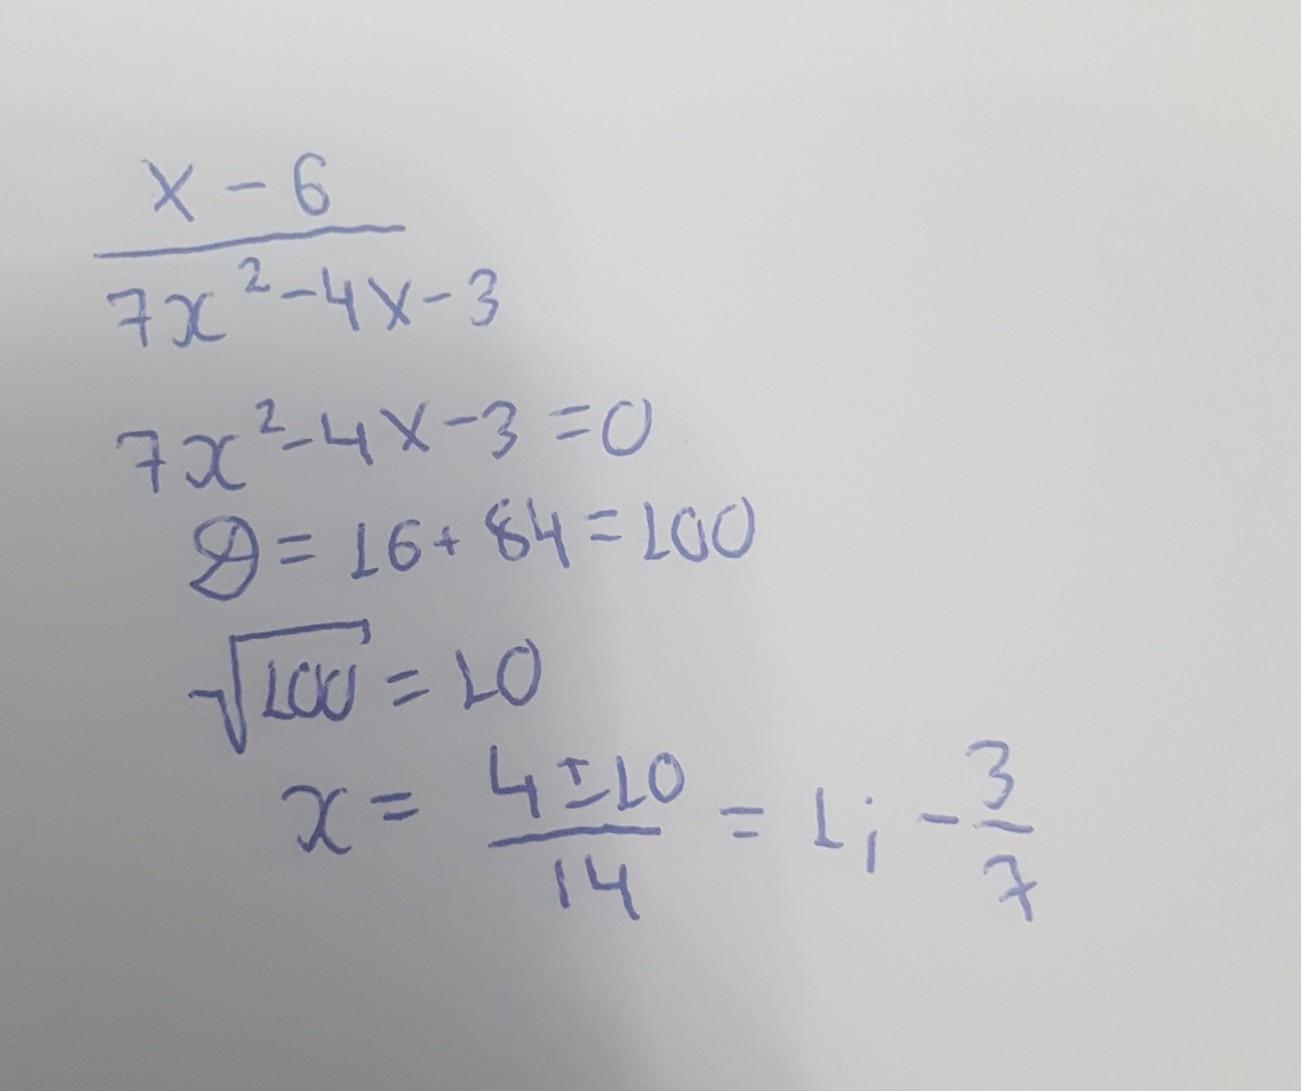 x - 6
7x² - 4x - 3
7x² - 4x - 3 = 0
D = 16 + 84 = 100
√100 = 10
x = (4 ± 10)/14 = 1; -3/7